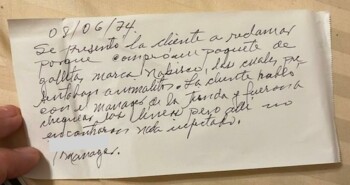 08/06/74.
Se presentó la cliente a reclamar
porque compró un paquete de
galleta marca Nabisco, las cuales
. La cliente habló
con el manager de la tienda y fueron a
chequear los pero allí no
encontraron nada infectado.
Manager.